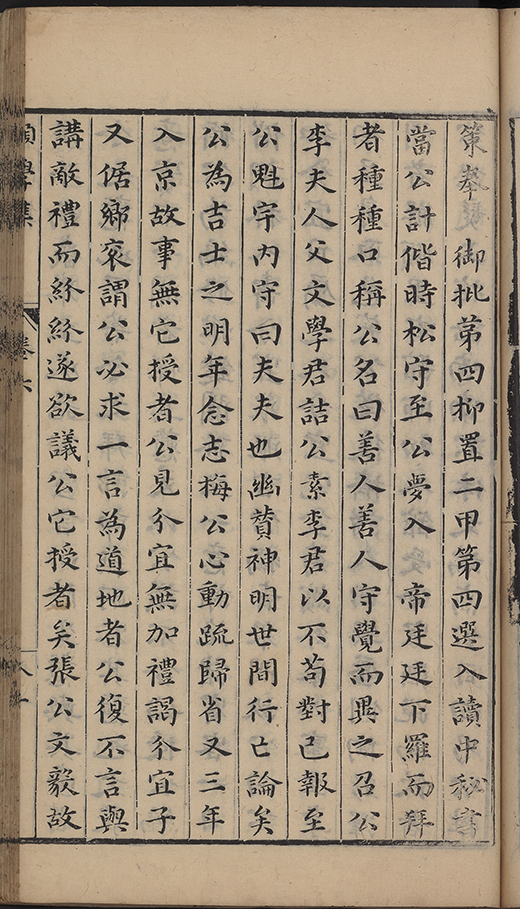 策奉擬　御批第四抑置二甲第四選入讀中秘書
當公計偕時松守至公夢入　帝廷廷下羅而拜
者種種口稱公名曰善人善人守覺而異之召公
李夫人父文學君詰公素李君以不苟對已報至
公魁宇內守曰夫夫也幽贊神明世間行亡論矣
公為吉士之明年念志梅公心動疏歸省又三年
入京故事無它授者公見分宜無加禮謁分宜子
又倨鄉衮謂公必求一言為道地者公復不言與
講敵禮而紛紛遂欲議公它授者矣張公文毅故
學集
卷六